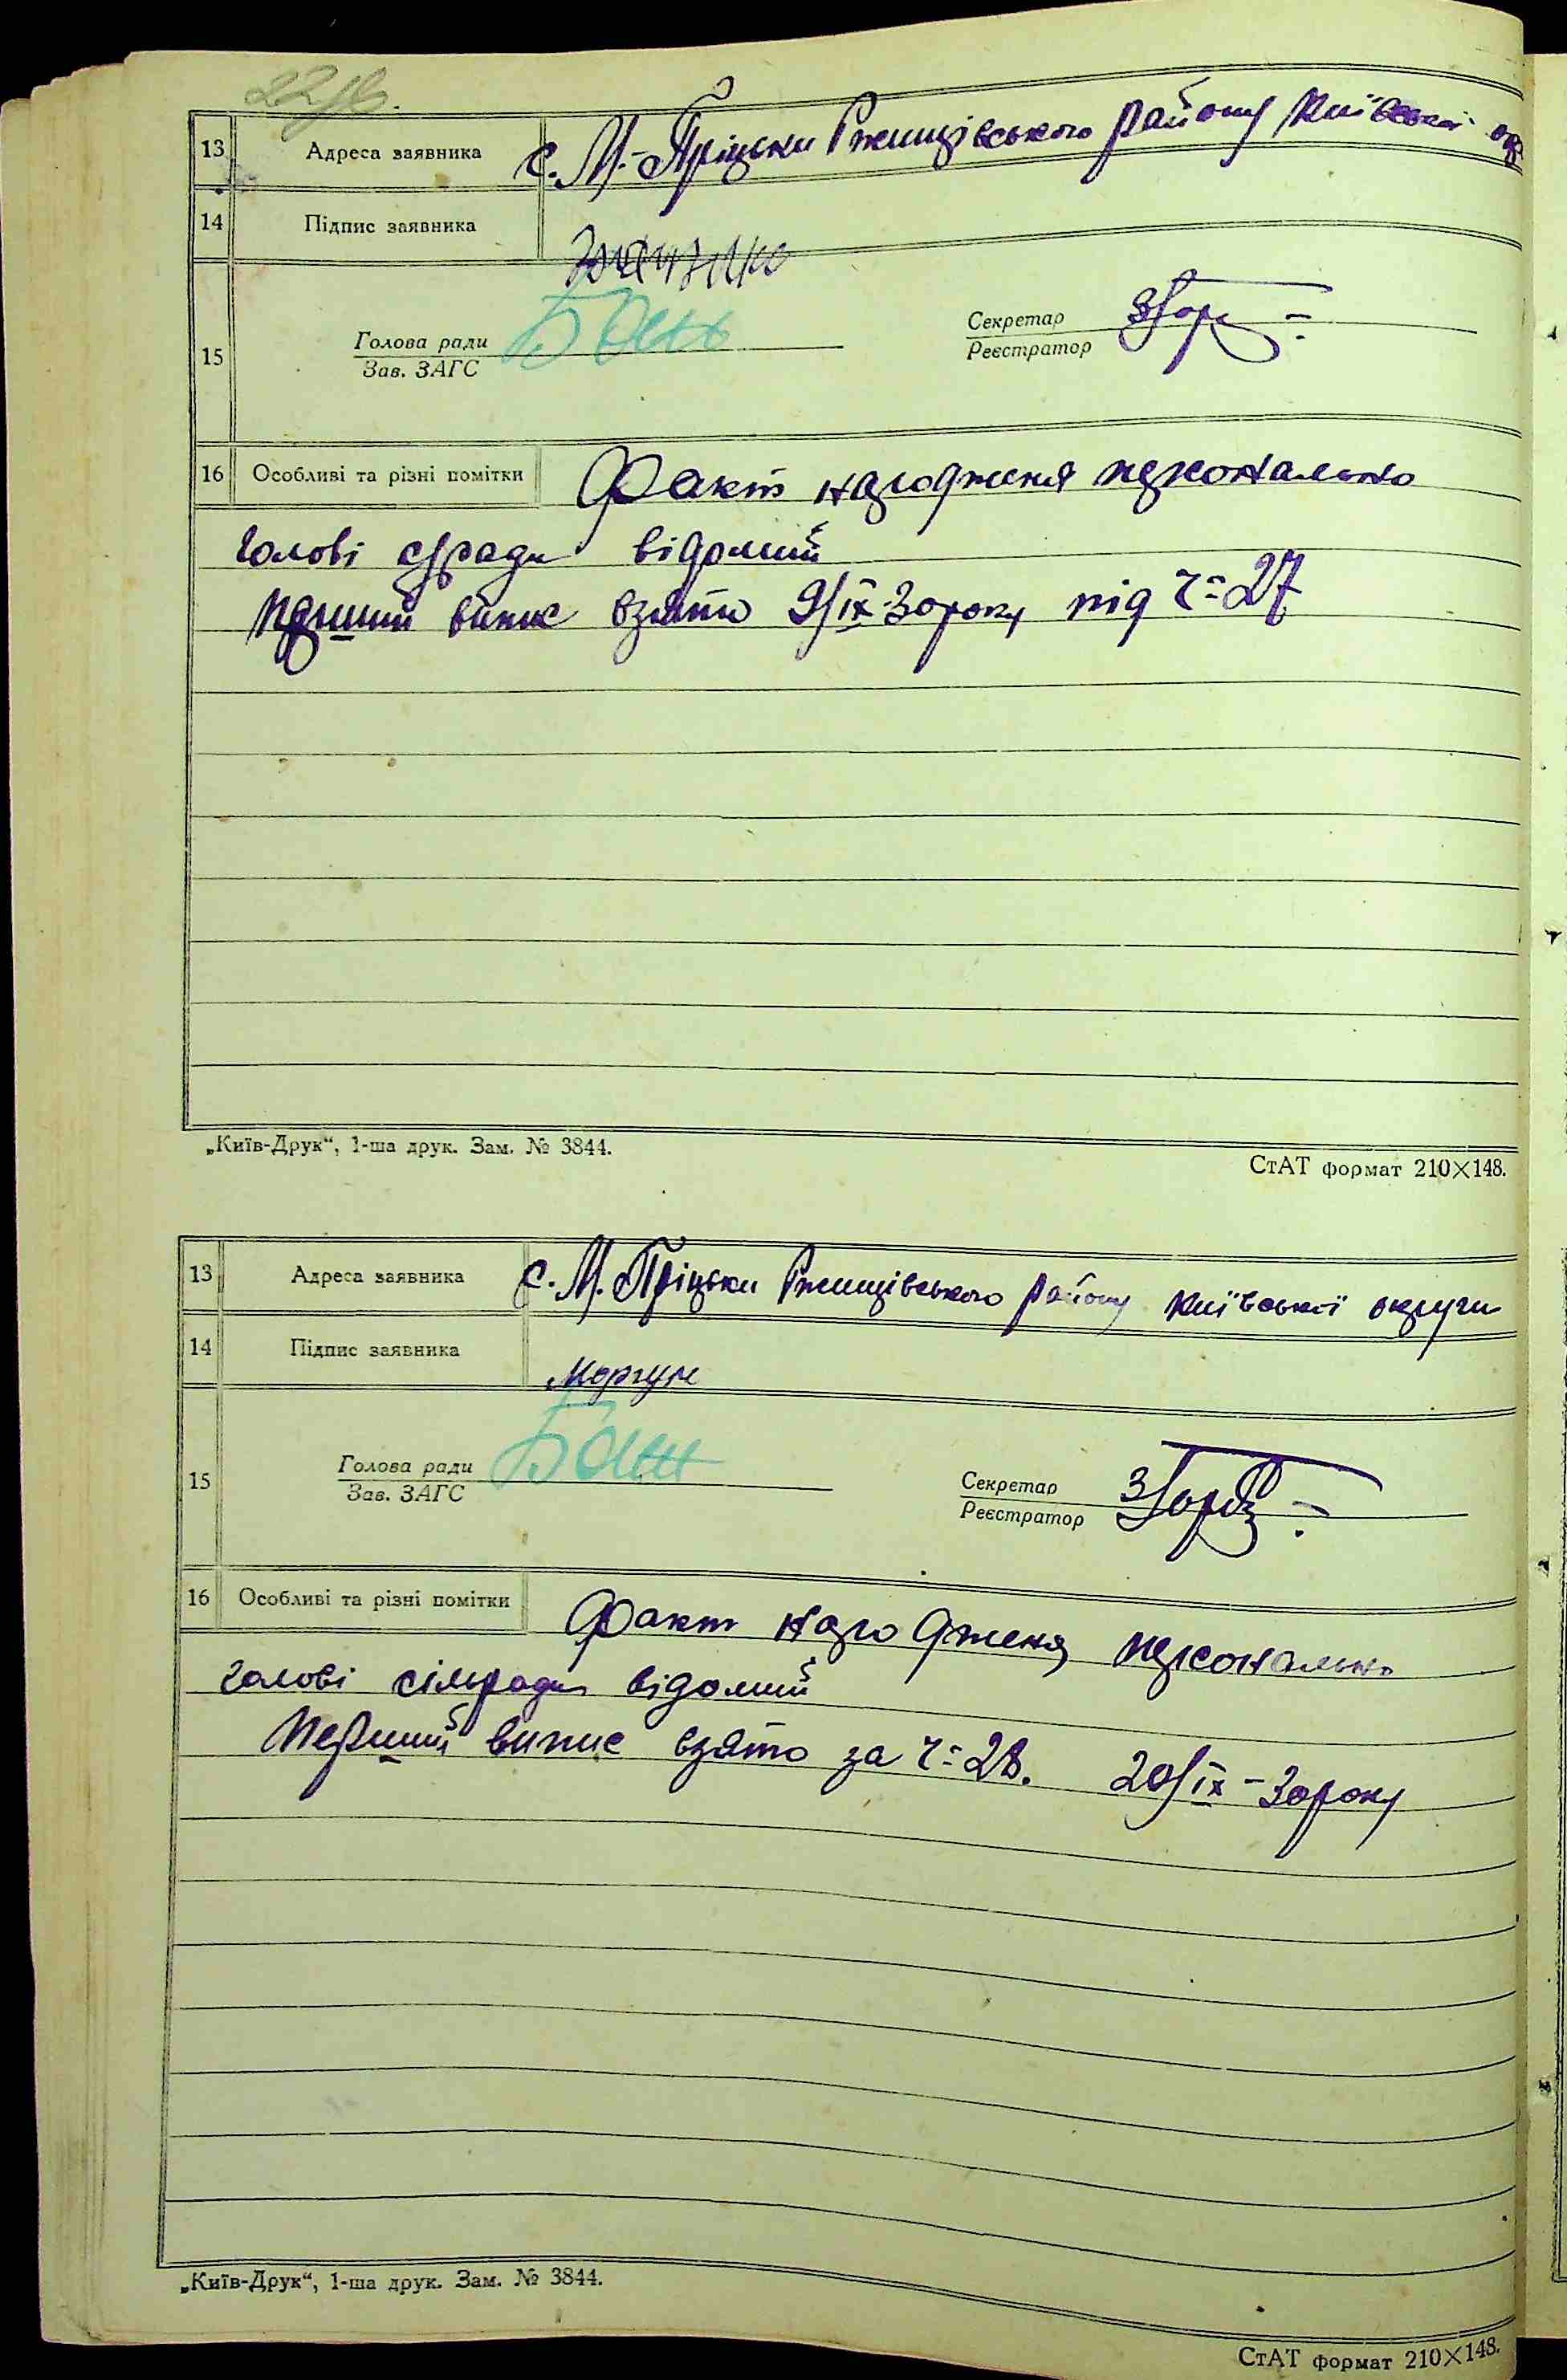 22зв.
13 Адреса заявника с. М.-Пріцьки Ржищівського району Київської ок
14 Підпис заявника
15 Голова ради Зав. ЗАГС Бан Секретар Реєстратор
16 Особливі та різні помітки Факт народження персонально
голові с/ради відомий
перший випис взято 9/ІХ-30 року під ч=27
„Київ-Друк“, 1-ша друк. Зам. № 3844.
СтАТ формат 210×148.
13 Адреса заявника с. М. Пріцьки Ржищівського району Київської округи
14 Підпис заявника Моргун
15 Голова ради Зав. ЗАГС Бан Секретар Реєстратор
16 Особливі та різні помітки Факт народженя персонально
голові сільради відомий
Перший випис взято за ч=28. 20/ІХ-30 року
„Київ-Друк“, 1-ша друк. Зам. № 3844.
СтАТ формат 210×148.